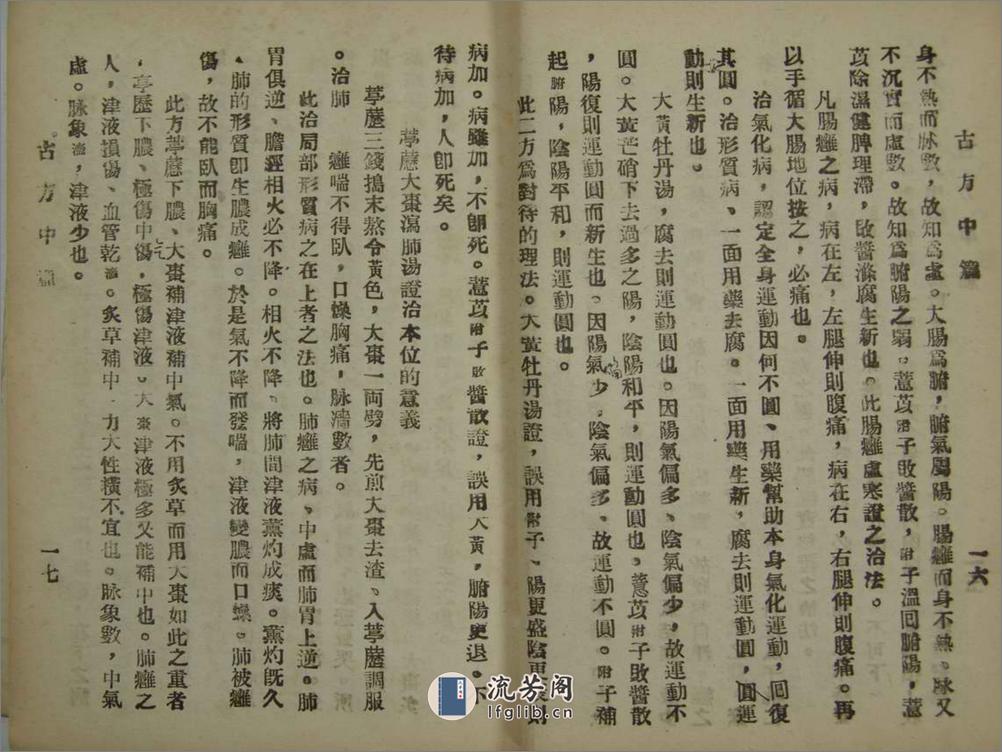 古方中篇
一六
身不熱而脉數，故知爲虛。大腸爲腑，腑氣屬陽。腸癰而身不熱、脉又
不沉實而虛數。故知爲腑陽之弱。薏苡附子敗醬散，附子溫回腑陽，薏
苡除濕健脾理滯，敗醬滌腐生新也。此腸癰虛寒證之治法。
凡腸癰之病，病在左，左腿伸則腹痛，病在右，右腿伸則腹痛。再
以手循大腸地位按之，必痛也。
治氣化病，認定全身運動因何不圓、用藥幫助本身氣化運動，回復
其圓。治形質病、一面用藥去腐。一面用藥生新，腐去則運動圓，圓運
動則生新也。
大黃牡丹湯，腐去則運動圓也。因陽氣偏多、陰氣偏少，故運動不
圓。大黃芒硝下去過多之陽，陰陽和平，則運動圓也。薏苡附子敗醬散
，陽復則運動圓而新生也。因陽氣少，陰氣偏多、故運動不圓。附子補
起腑陽，陰陽平和，則運動圓也。
此二方爲對待的理法。大黃牡丹湯證，誤用附子、陽更盛陰更　則
病加。病雖加，不卽死。薏苡附子敗醬散證，誤用大黃，腑陽更退。不
待病加，人卽死矣。
葶藶大棗瀉肺湯證治本位的意義
葶藶三錢搗末熬令黃色，大棗一両劈，先煎大棗去渣、入葶藶調服
。治肺癰喘不得臥，口燥胸痛，脉濇數者。
此治局部形質病之在上者之法也。肺癰之病、中虛而肺胃上逆。肺
胃俱逆、膽經相火必不降。相火不降、將肺間津液薰灼成痰。薰灼旣久
、肺的形質卽生膿成癰。於是氣不降而發喘，津液變膿而口燥。肺被癰
傷，故不能臥而胸痛。
此方葶藶下膿、大棗補津液補中氣。不用炙草而用大棗如此之重者
，葶藶下膿、極傷中傷，極傷津液。大棗津液極多又能補中也。肺癰之
人，津液損傷、血管乾濇。炙草補中，力大性橫不宜也。脉象數，中氣
虛。脉象濇，津液少也。
古方中篇
一七
流芳阁
lfglib.cn